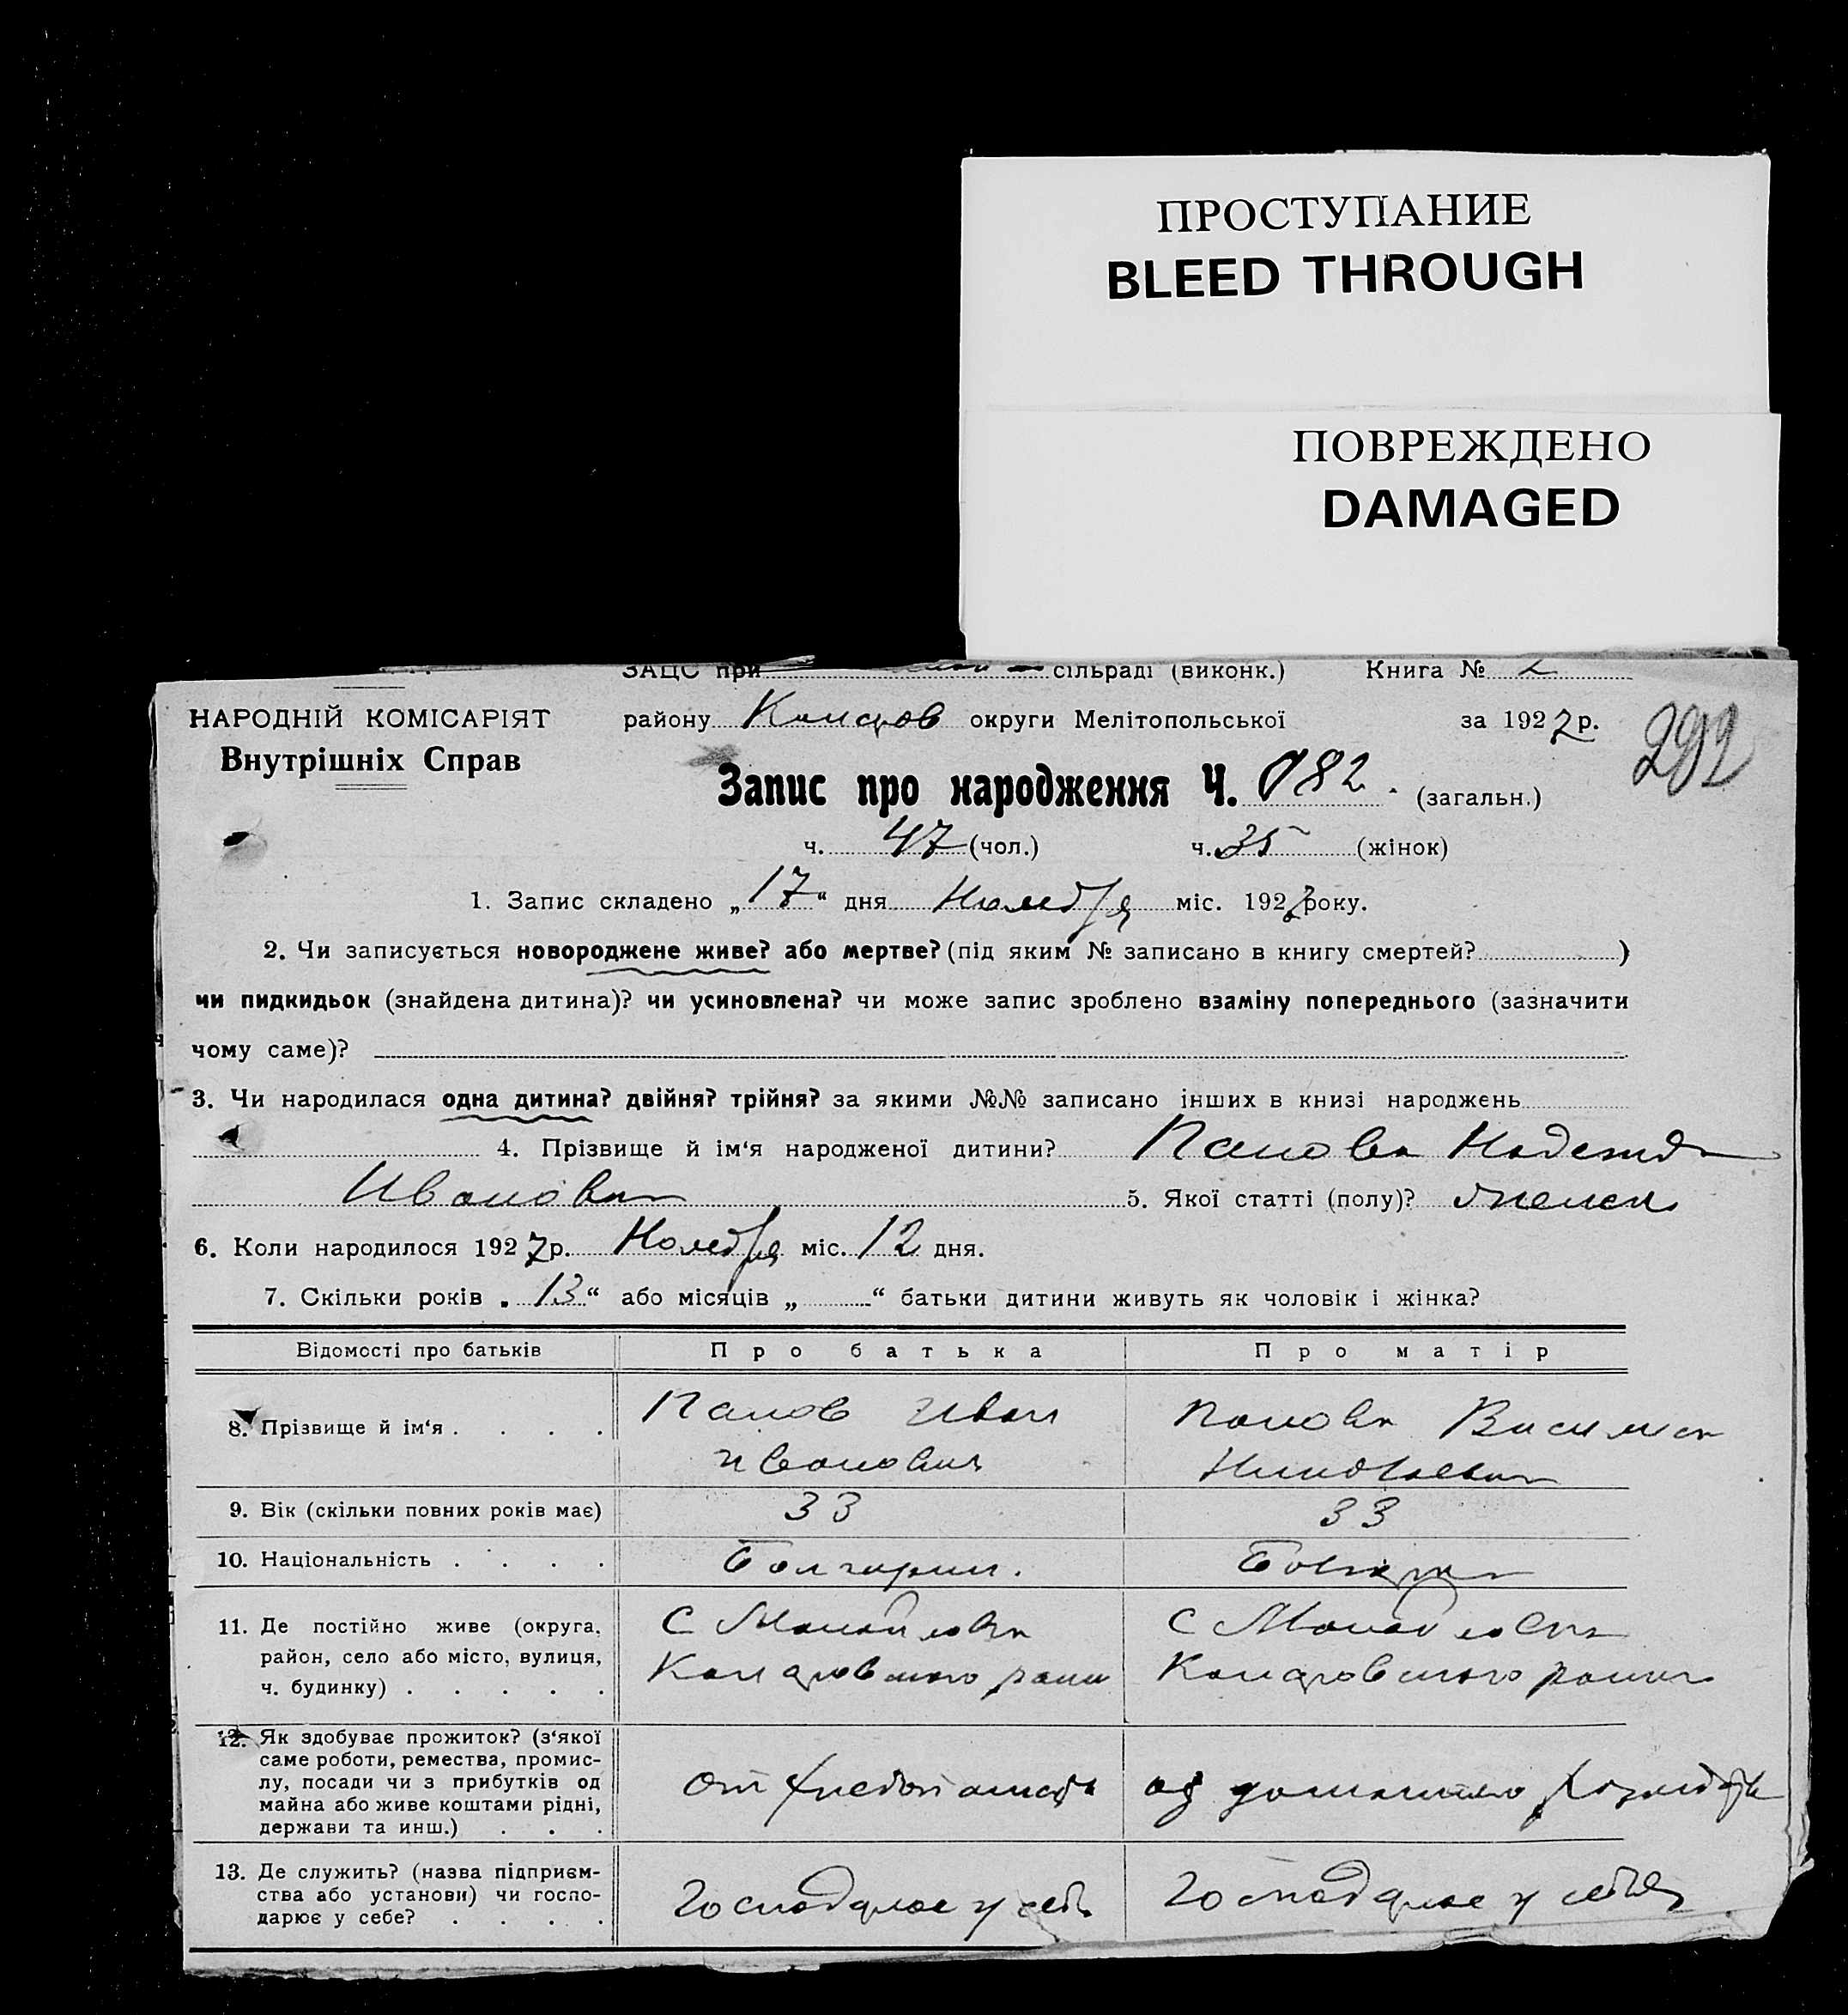 ПРОСТУПАНИЕ
BLEED THROUGH
ПОВРЕЖДЕНО
DAMAGED
ЗАЦС при сільраді (виконк.) Книга № 2
НАРОДНІЙ КОМІСАРІЯТ
району округи Мелітопольської за 1927 р.
292
Внутрішніх Справ
Запис про народження Ч. 082. (загальн.)
ч. 47 (чол.) ч. 35 (жінок)
1. Запис складено „17“ дня Ноября міс. 1927 року.
2. Чи записується новороджене живе? або мертве? (під яким № записано в книгу смертей? )
чи пидкидьок (знайдена дитина)? чи усиновлена? чи може запис зроблено взаміну попереднього (зазначити
чому саме)?
3. Чи народилася одна дитина? двійня? трійня? за якими №№ записано інших в книзі народжень
4. Прізвище й ім‘я народженої дитини? Панова Надежда
Ивановна 5. Якої статті (полу)? женск
6. Коли народилося 1927 р. Ноября міс. 12 дня.
7. Скільки років „13“ або місяців „ “ батьки дитини живуть як чоловік і жінка?
Відомості про батьків Про батька Про матір
8. Прізвище й ім‘я . . . . Панов Иван Панова
Иванович Николаевна
9. Вік (скільки повних років має) 33 33
10. Національність . . . . Болгарин. Болгарка
11. Де постійно живе (округа,
район, село або місто, вулиця,
ч. будинку) . . . . .
С С
12. Як здобуває прожиток? (з‘якої
саме роботи, ремества, промис-
лу, посади чи з прибутків од
майна або живе коштами рідні,
держави та инш.) . . .
от хлебопашества од домашнего
13. Де служить? (назва підприєм-
ства або установи) чи госпо-
дарює у себе? . . . .
Господарює у себя Господарює у себя